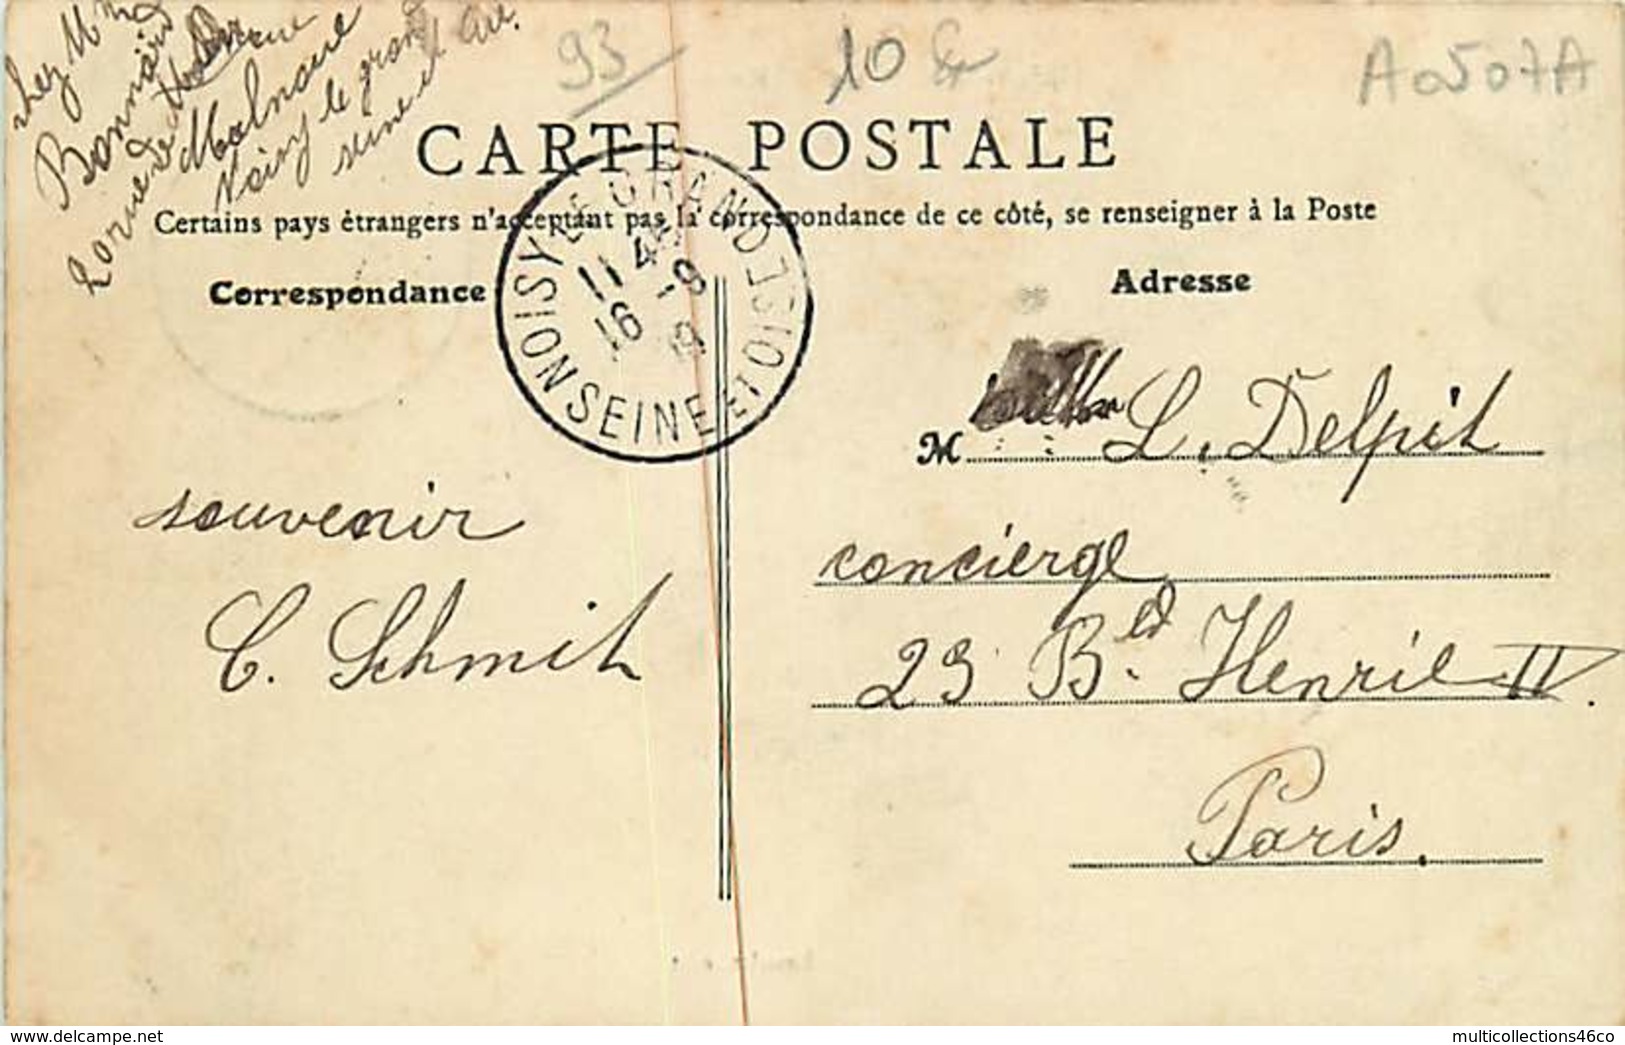 chez Mme
Bonnard
2 rue de
Malnoue
Noisy le grand
seine et oise.
93
10
A0507A
CARTE POSTALE
Certains pays étrangers n'acceptant pas la correspondance de ce côté, se renseigner à la Poste
Correspondance
Adresse
NOISY LE GRAND
11 45
16 - 9
SEINE ET OISE
M L. Delpit
concierge
23 Bd. Henri IV.
Paris.
souvenir
C. Schmit
delcampe.net
multicollections46co